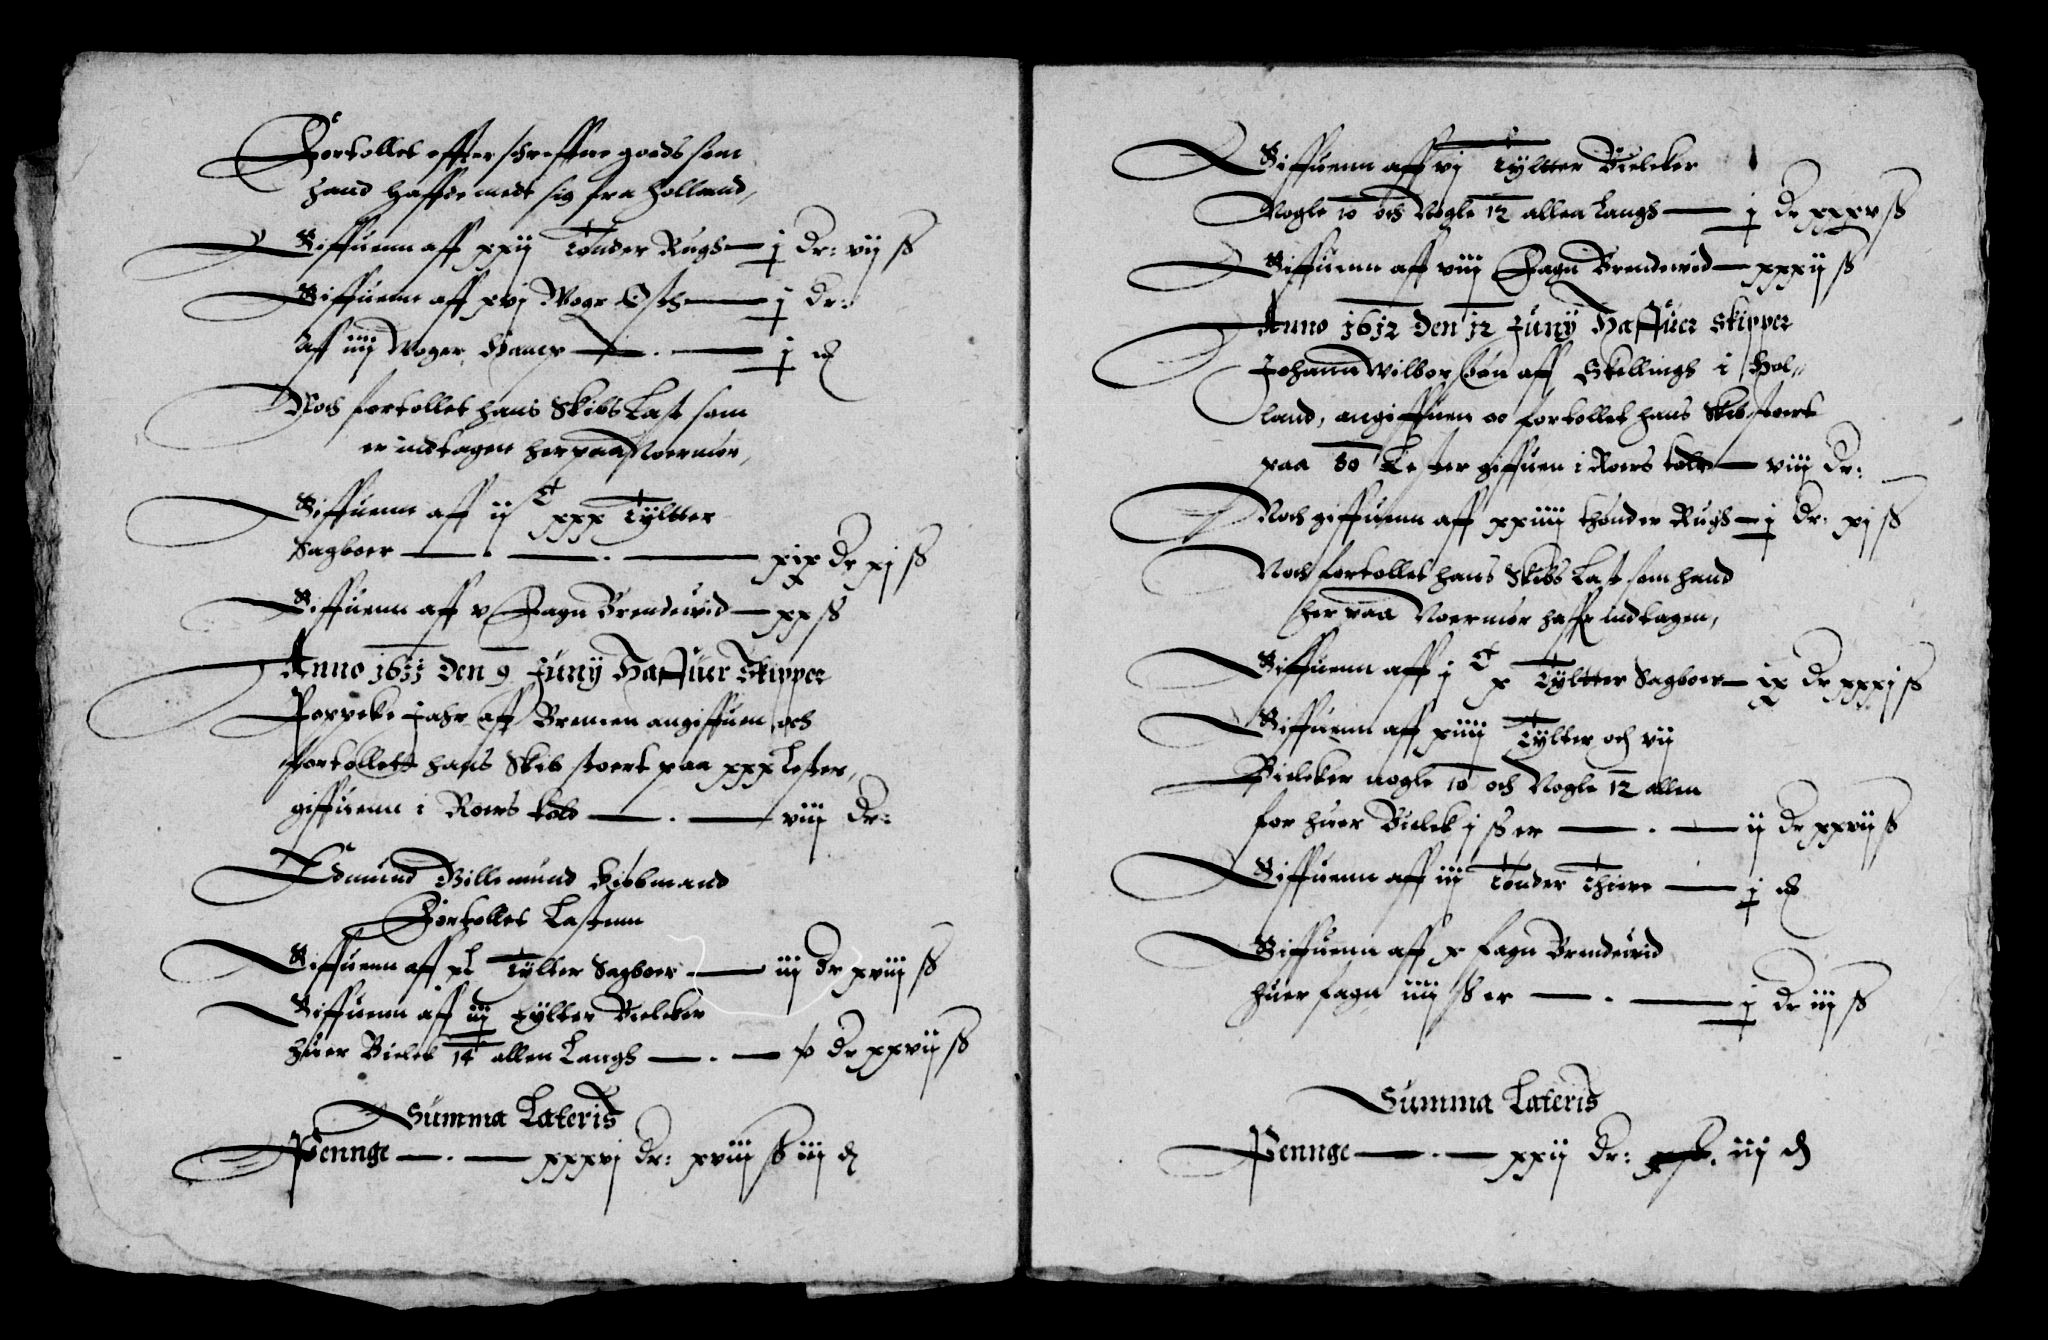 Fortollet effter schreffne goeds som
hand haffde medt sig fra Holland,
Giffuenn aff xxij Tønder Rugh — j dr: vij ß
Giffuenn aff xvj Woge Osth — j dr:
Aff iiij Woger Hamp — . — j ₰
Noch fortollet hans Skibs Last som
er indtagen her paa Noermør,
Giffuenn aff ij C xxx Tÿltter
Sagboer — . — . — xix dr xj ß
Giffuenn aff v Fagn Brendeuid — xx ß
Anno 1611 den 9 Junÿ Haffuer Skipper
Poppeke Jahr aff Bremen angiffuen och
fortollett hans Skib stoert paa xxx Lester,
giffuenn i Roers told — . — viij dr:
Edmund Billemund Kiøbmand
Fortollet Lastenn
Giffuenn aff xl Tÿlter Sagboer — iij dr xviij ß
Giffuenn aff iij Tÿlter Bielcker
huer Bielck 14 allen Langh — . — v dr xxvij ß
Summa Lateris
Pennge — . — xxxvj dr: xviij ß iij ₰
Giffuenn aff vj Tÿltter Bielcker
Nogle 10 och Nogle 12 allen Langh — j dr xxxv ß
Giffuenn aff viij Fagn Brendeuid — xxxij ß
Anno 1612 den 12 Junÿ Haffuer Skipper
Johann Wilborssøn aff Skellingh i Hol„
land, angiffuen oc fortollet hans Skib stoert
paa 30 Lester giffuen i Roers told — viij dr:
Noch giffuenn aff xxiiij thønder Rugh — j dr: xj ß
Noch fortollet hans Skibs Last som hand
her paa Noermør haffr indtagen,
Giffuenn aff j C x Tÿltter Sagboer — ix dr xxxj ß
Giffuenn aff xiiij Tÿlter och vij
Bielcker nogle 10 och Nogle 12 allen
for huer Bielck j ß er — . — ij dr xxvij ß
Giffuenn aff iij Tønder Thiere — j ₰
Giffuenn aff x fagn Brendeuid
huer fagn iiij ß er — . — j dr iij ß
Summa Lateris
Pennge — . — xxij dr: iij ₰